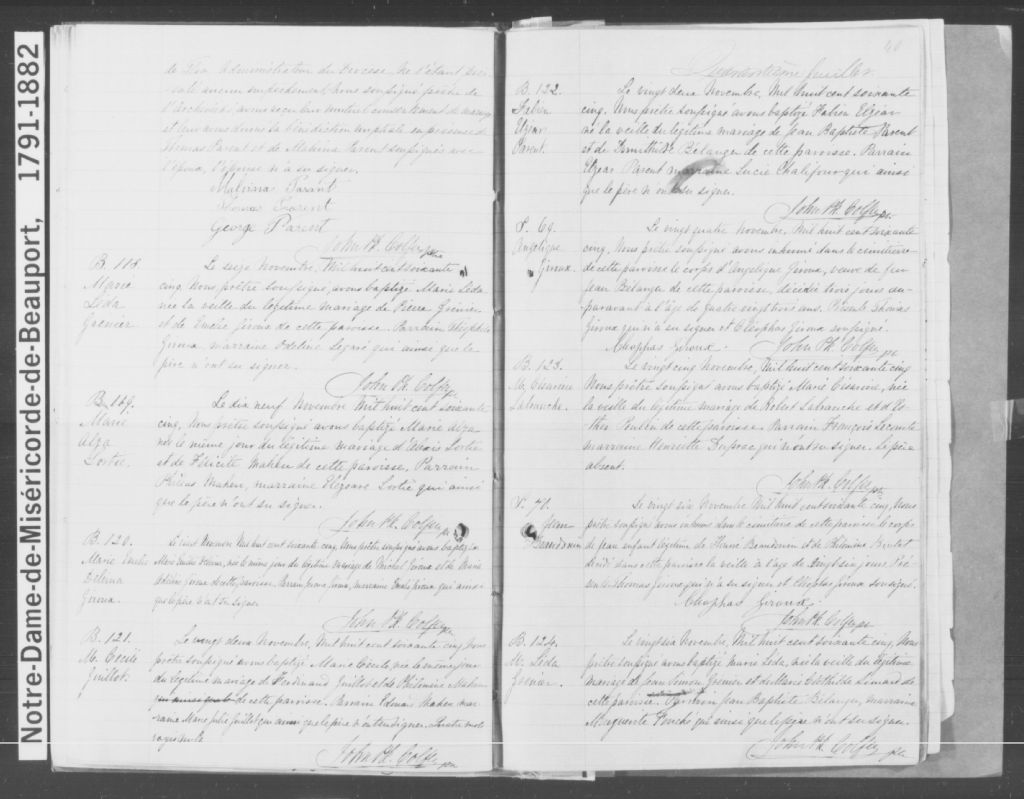 Notre-Dame-de-Miséricorde-de-Beauport, 1791-1882
Administrateur du Diocèse ne s'étant
aucun empêchement Nous soussigné prêtre de
avons reçu leur mutuel consentement de mariage
et leur avons donné la bénédiction nuptiale en présence de
Thomas Parent et de Malvina Parent soussignés avec
l'époux, l'épouse n'a su signer.
Malvina Parent
Thomas Parent
George Parent
John Ph. Colfer ptre
B. 118.
Marie
Léda
Grenier
Le seize Novembre, Mil huit cent soixante
cinq, Nous prêtre soussigné, avons baptisé Marie Léda
née la veille du légitime mariage de Pierre Grenier
et de Giroux de cette paroisse. Parrain
Giroux marraine qui ainsi que le
père n'ont su signer.
John Ph. Colfer ptre
B. 119.
Marie
Alza
Lortie.
Le dix neuf Novembre Mil huit cent soixante
cinq, Nous prêtre soussigné avons baptisé Marie Alza
née le même jour du légitime mariage d' Lortie
et de Félicité Maheu de cette paroisse, Parrain
Maheu, marraine Lortie qui ainsi
que le père n'ont su signer.
John Ph. Colfer ptre
B. 120.
Marie
Giroux.
Novembre Mil huit cent soixante cinq, Nous prêtre soussigné avons baptisé
Marie du légitime mariage de Giroux et de Marie
Giroux de cette paroisse, Parrain Giroux, marraine qui ainsi
que le père n'a su signer
John Ph. Colfer ptre
B. 121.
M. Cécile
Guillot.
Le vingt deux Novembre, Mil huit cent soixante cinq, Nous
prêtre soussigné avons baptisé Marie Cécile, née le même jour
du légitime mariage de Ferdinand Guillot et de Philomène Maheu
de cette paroisse. Parrain Maheu mar-
raine Marie Julie Guillot qui ainsi que le père n'ont su signer.
John Ph. Colfer ptre
40
Quarantième feuillet.
B. 122.
Fabien
Elzéar
Parent.
Le vingt deux Novembre, Mil huit cent soixante
cinq. Nous prêtre soussigné avons baptisé Fabien Elzéar
né la veille du légitime mariage de Jean Baptiste Parent
et de Bélanger de cette paroisse. Parrain
Elzéar Parent marraine Lucie Chalifour qui ainsi
que le père n'ont su signer.
John Ph. Colfer ptre
S. 69.
Angélique
Giroux.
Le vingt quatre Novembre, Mil huit cent soixante
cinq, Nous prêtre soussigné avons inhumé dans le cimetière
de cette paroisse le corps d'Angélique Giroux, veuve de feu
Jean Bélanger de cette paroisse, décédée trois jours au-
paravant à l'âge de quatre vingt trois ans. Présents Thomas
Giroux qui n'a su signer et Cléophas Giroux soussigné.
Cléophas Giroux. John Ph. Colfer ptre
B. 123.
M.
Labranche.
Le vingt cinq Novembre, Mil huit cent soixante cinq
Nous prêtre soussigné avons baptisé Marie née
la veille du légitime mariage de Robert Labranche et
de cette paroisse. Parrain François Leconte
marraine Henriette qui n'ont su signer. Le père
absent.
John Ph. Colfer ptre
S. 70.
Jean
Beaudouin
Le vingt six Novembre Mil huit cent soixante cinq, Nous
prêtre soussigné avons inhumé dans le cimetière de cette paroisse le corps
de Jean enfant légitime de Beaudouin et de Philomène
décédé dans cette paroisse la veille à l'âge de jours. Pré-
sents Thomas Giroux qui n'a su signer et Cléophas Giroux soussigné.
Cléophas Giroux.
John Ph. Colfer ptre
B. 124.
M. Léda
Grenier.
Le vingt six Novembre, Mil huit cent soixante cinq, Nous
prêtre soussigné avons baptisé Marie Léda, née la veille du légitime
mariage de Jean Grenier et de Marie
cette paroisse. Parrain Jean Baptiste Bélanger, marraine
Marguerite qui ainsi que le père n'ont su signer.
John Ph. Colfer ptre